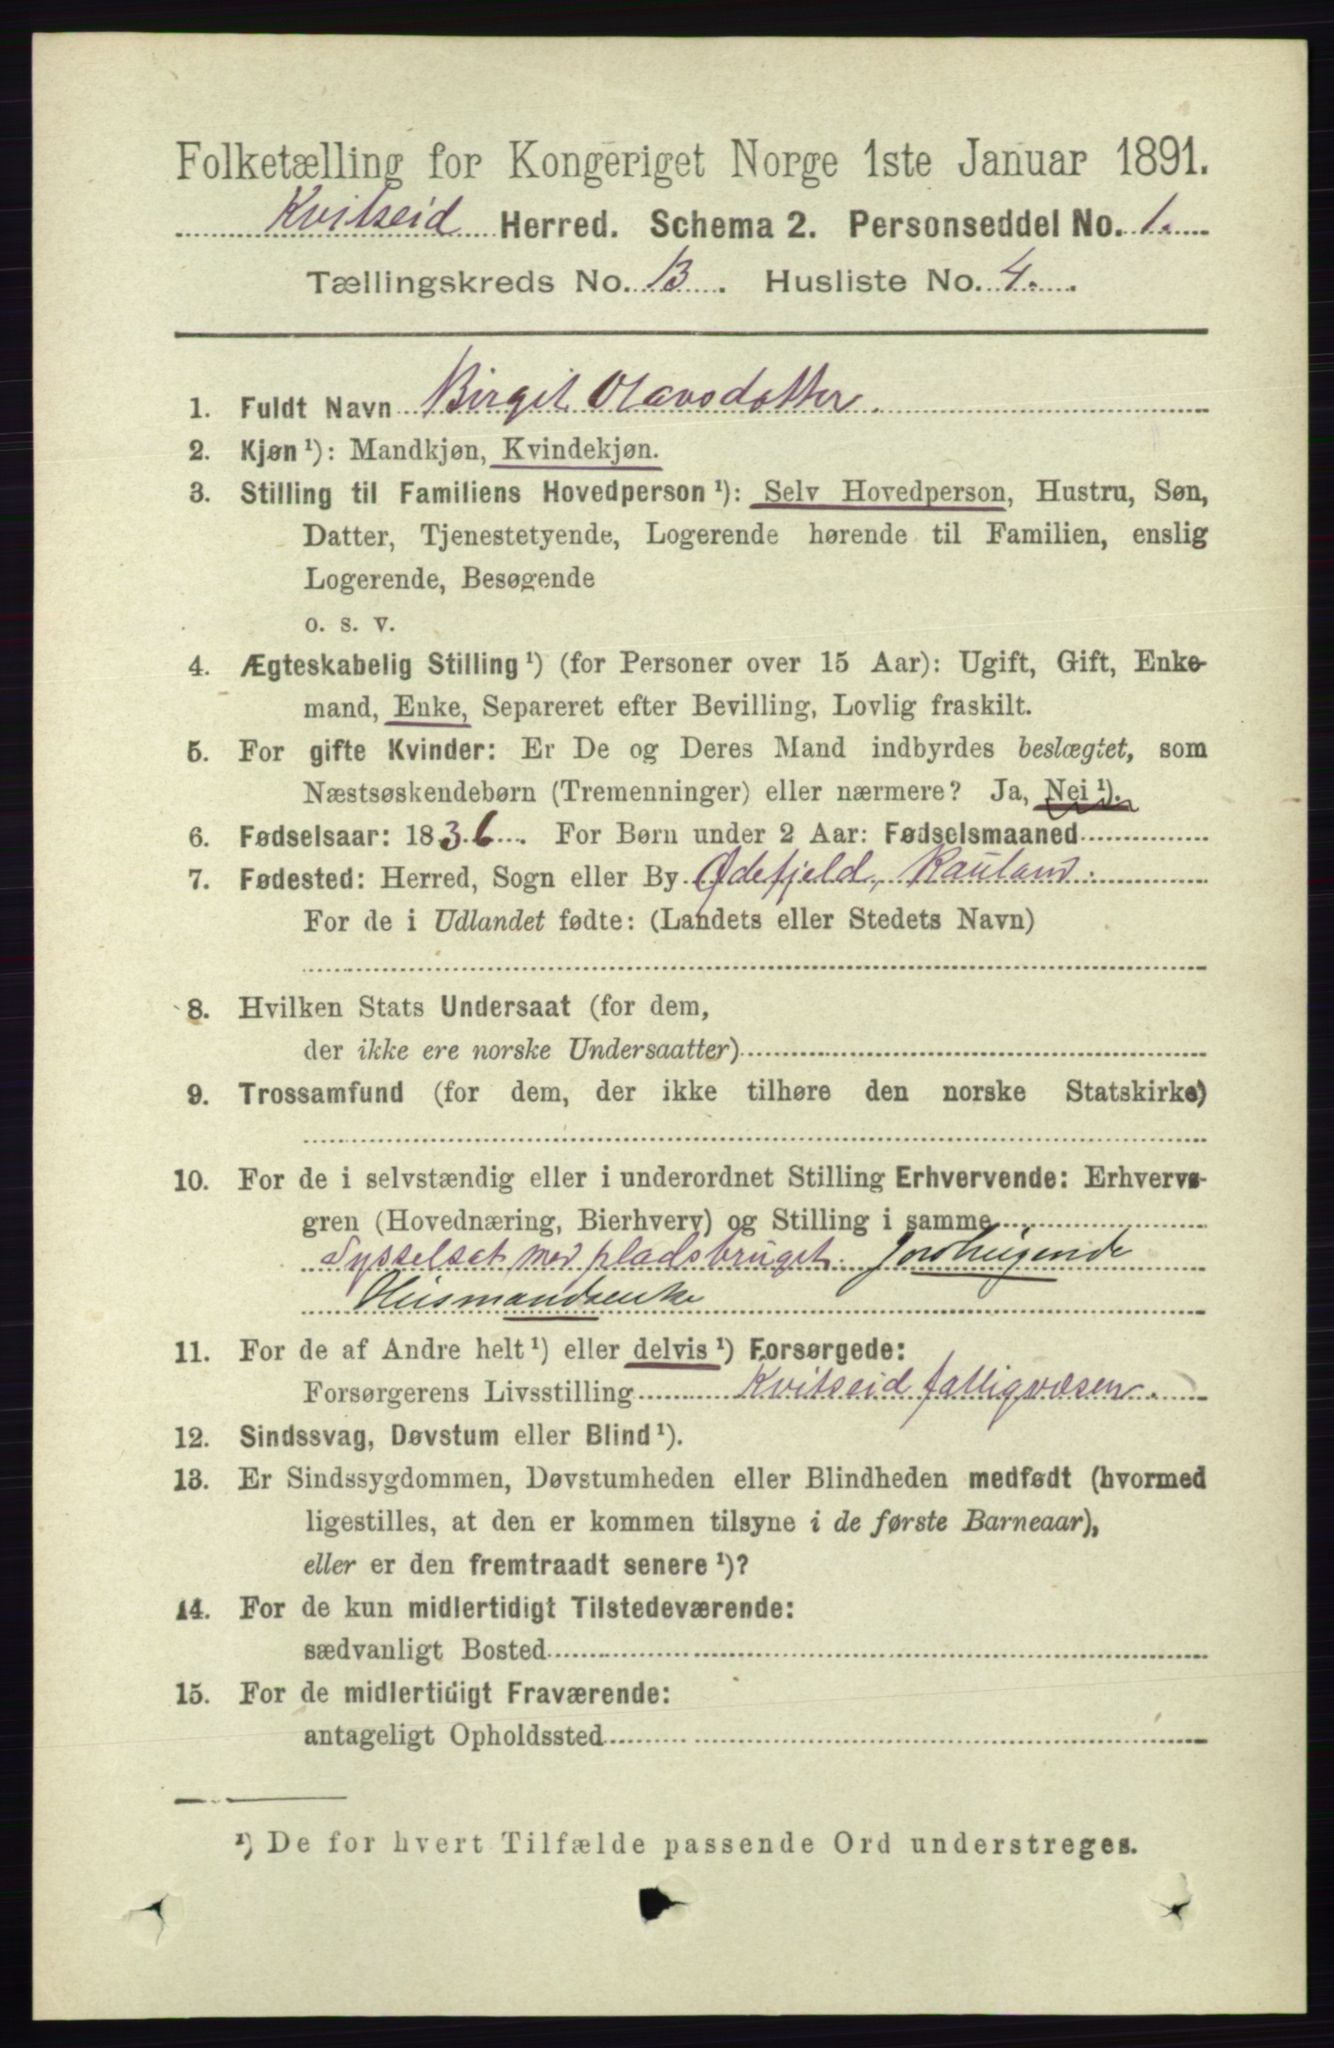 Folketælling for Kongeriget Norge 1ste Januar 1891.
Kvitseid Herred. Schema 2. Personseddel No. 1.
Tællingskreds No. 13. Husliste No. 4.
1. Fuldt Navn Birgit Olavsdotter.
2. Kjøn ¹): Mandkjøn, Kvindekjøn.
3. Stilling til Familiens Hovedperson ¹): Selv Hovedperson, Hustru, Søn,
Datter, Tjenestetyende, Logerende hørende til Familien, enslig
Logerende, Besøgende
o. s. v.
4. Ægteskabelig Stilling ¹) (for Personer over 15 Aar): Ugift, Gift, Enke-
mand, Enke, Separeret efter Bevilling, Lovlig fraskilt.
5. For gifte Kvinder: Er De og Deres Mand indbyrdes beslægtet, som
Næstsøskendebørn (Tremenninger) eller nærmere? Ja, Nei ¹).
6. Fødselsaar: 1836. For Børn under 2 Aar: Fødselsmaaned
7. Fødested: Herred, Sogn eller By Ødefjeld, Rauland.
For de i Udlandet fødte: (Landets eller Stedets Navn)
8. Hvilken Stats Undersaat (for dem,
der ikke ere norske Undersaatter)
9. Trossamfund (for dem, der ikke tilhøre den norske Statskirke)
10. For de i selvstændig eller i underordnet Stilling Erhvervende: Erhvervs-
gren (Hovednæring, Bierhverv) og Stilling i samme
Sysselsat med pladsbruget. Jordbrugende
Husmandsenke
11. For de af Andre helt ¹) eller delvis ¹) Forsørgede:
Forsørgerens Livsstilling Kvitseid fattigvæsen.
12. Sindssvag, Døvstum eller Blind ¹).
13. Er Sindssygdommen, Døvstumheden eller Blindheden medfødt (hvormed
ligestilles, at den er kommen tilsyne i de første Barneaar),
eller er den fremtraadt senere ¹)?
14. For de kun midlertidigt Tilstedeværende:
sædvanligt Bosted
15. For de midlertidigt Fraværende:
antageligt Opholdssted
¹) De for hvert Tilfælde passende Ord understreges.